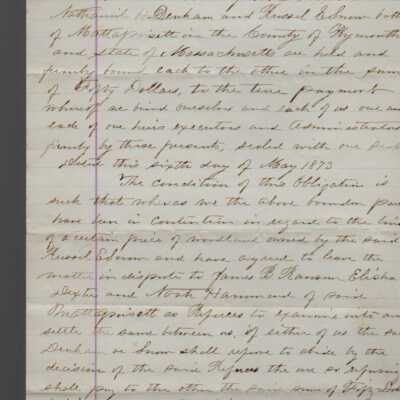 Nathaniel H Denham and Russel E Snow both
of Mattapoisett in the County of Plymouth
and state of Massachusetts are held and
firmly bound each to the other in the sum
of Fifty Dollars, to the true payment
whereof we bind ourselves and each of us our and
each of our heirs executors and Administrators
firmly by these presents, sealed with our seals
this sixth day of May 1873
The condition of this Obligation is
such that whereas we the above bounden
have been in contention in regard to the line
of a certain piece of woodland owned by the said
Russel E Snow and have agreed to leave the
matter in dispute to James B Ransom Elisha
Dexter and Noah Hammond of said
Mattapoisett as Referees to examine into and
settle the same between us, if either of us the said
Denham or Snow shall refuse to abide by the
decision of the said Referees the one so refusing
shall pay to the other the said sum of Fifty